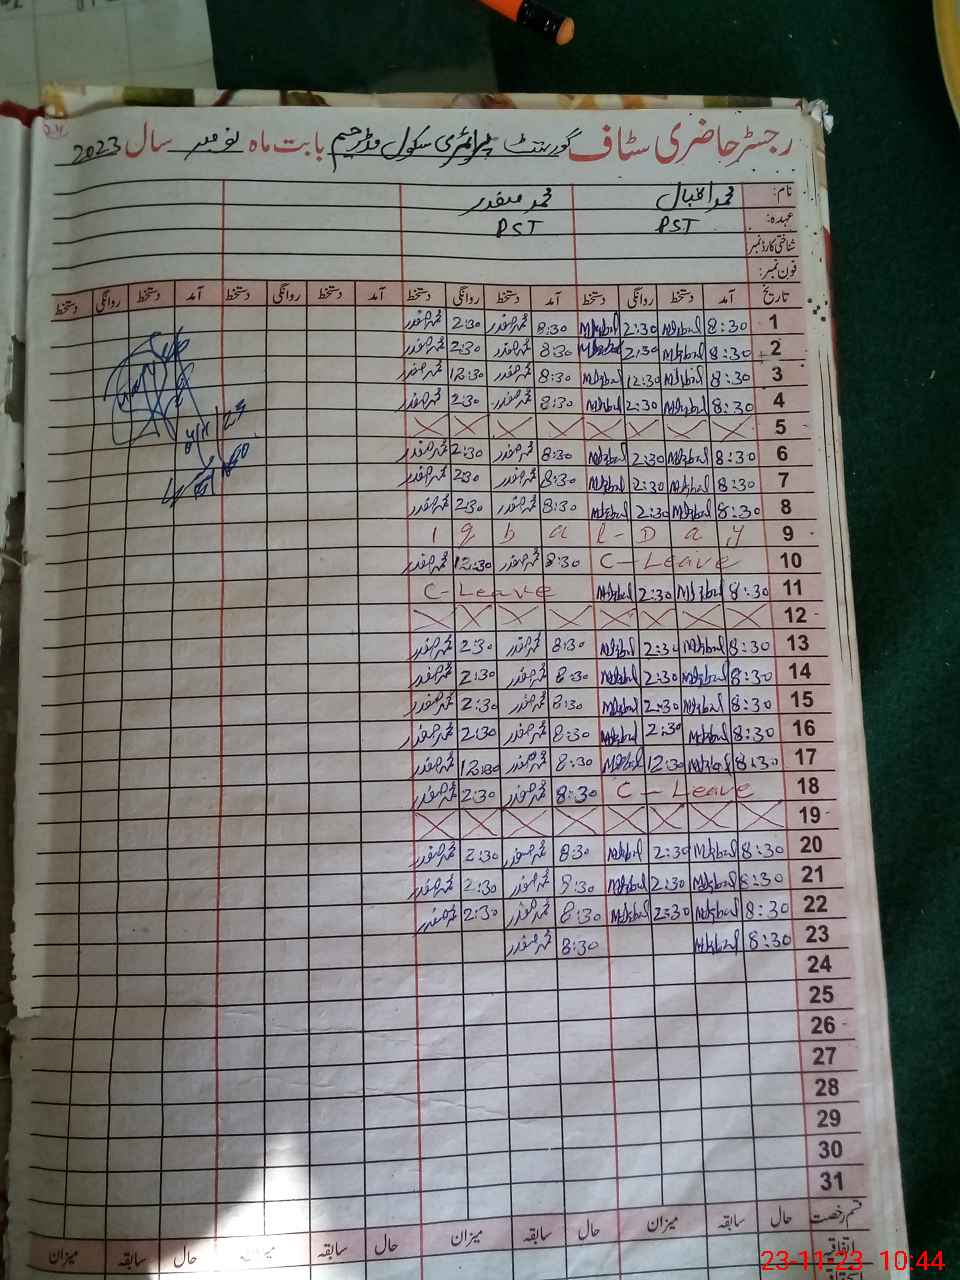 رجسٹر حاضری سٹاف گورنمنٹ پرائمری سکول بابت ماہ نومبر سال 2023
نام: محمد اقبال محمد صفدر
عہدہ: PST PST
شناختی کارڈ نمبر:
فون نمبر:
تاریخ آمد دستخط روانگی دستخط آمد دستخط روانگی دستخط آمد دستخط روانگی دستخط آمد دستخط روانگی دستخط
1 8:30 MIqbal 2:30 MIqbal 8:30 محمد صفدر 2:30 محمد صفدر
2 8:30 MIqbal 2:30 MIqbal 8:30 محمد صفدر 2:30 محمد صفدر
3 8:30 MIqbal 12:30 MIqbal 8:30 محمد صفدر 12:30 محمد صفدر
4 8:30 MIqbal 2:30 MIqbal 8:30 محمد صفدر 2:30 محمد صفدر
5
6 8:30 MIqbal 2:30 MIqbal 8:30 محمد صفدر 2:30 محمد صفدر
7 8:30 MIqbal 2:30 MIqbal 8:30 محمد صفدر 2:30 محمد صفدر
8 8:30 MIqbal 2:30 MIqbal 8:30 محمد صفدر 2:30 محمد صفدر
9 Iqbal-Day
10 C-Leave 8:30 محمد صفدر 12:30 محمد صفدر
11 8:30 MIqbal 2:30 MIqbal C-Leave
12
13 8:30 MIqbal 2:30 MIqbal 8:30 محمد صفدر 2:30 محمد صفدر
14 8:30 MIqbal 2:30 MIqbal 8:30 محمد صفدر 2:30 محمد صفدر
15 8:30 MIqbal 2:30 MIqbal 8:30 محمد صفدر 2:30 محمد صفدر
16 8:30 MIqbal 2:30 MIqbal 8:30 محمد صفدر 2:30 محمد صفدر
17 8:30 MIqbal 12:30 MIqbal 8:30 محمد صفدر 12:30 محمد صفدر
18 C-Leave 8:30 محمد صفدر 2:30 محمد صفدر
19
20 8:30 MIqbal 2:30 MIqbal 8:30 محمد صفدر 2:30 محمد صفدر
21 8:30 MIqbal 2:30 MIqbal 8:30 محمد صفدر 2:30 محمد صفدر
22 8:30 MIqbal 2:30 MIqbal 8:30 محمد صفدر 2:30 محمد صفدر
23 8:30 MIqbal 8:30 محمد صفدر
24
25
26
27
28
29
30
31
قسم رخصت حال سابقہ میزان حال سابقہ میزان حال سابقہ میزان حال سابقہ میزان
اتفاقیہ
23-11-23 10:44